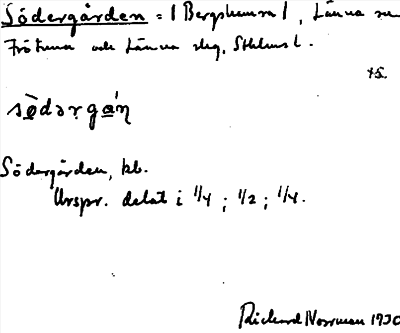 Södergården = (Bergshamra), Länna sn
Frötuna och Länna slg, Sthlms l.
+S.
sø̀dərgáɳ
Södergården, kb.
Urspr. delat i 1/4; 1/2; 1/4.
Rickard Norrman 1930